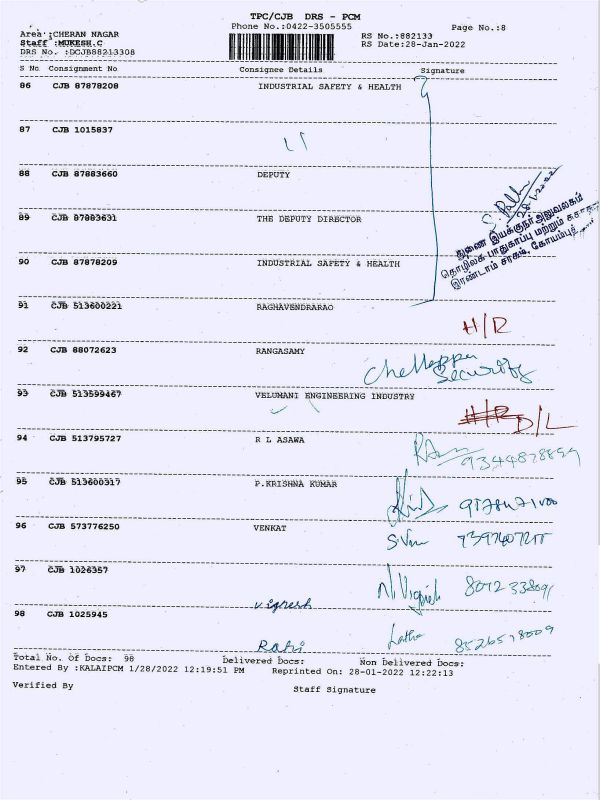 TPC/CJB DRS - PCM
Phone No.:0422-3505555 Page No.:8
Area :CHERAN NAGAR RS No.:882133
Staff :MUKESH.C RS Date:28-Jan-2022
DRS No. :DCJB88213308
S No Consignment No Consignee Details Signature
86 CJB 87878208 INDUSTRIAL SAFETY & HEALTH
87 CJB 1015837
88 CJB 87883660 DEPUTY
89 CJB 87883631 THE DEPUTY DIRECTOR
துணை இயக்குநர் அலுவலகம்
தொழிலக பாதுகாப்பு மற்றும் சுகாதார
இரண்டாம் சரகம், கோயம்புத்
90 CJB 87878209 INDUSTRIAL SAFETY & HEALTH
91 CJB 513600221 RAGHAVENDRARAO
H/R
92 CJB 88072623 RANGASAMY
Chellappa
Security
93 CJB 513599467 VELUMANI ENGINEERING INDUSTRY
D/L
94 CJB 513795727 R L ASAWA
95 CJB 513600317 P.KRISHNA KUMAR
96 CJB 573776250 VENKAT
97 CJB 1026357
Vignesh N.Vignesh
98 CJB 1025945
Rafi Latha
Total No. Of Docs: 98 Delivered Docs: Non Delivered Docs:
Entered By :KALAIPCM 1/28/2022 12:19:51 PM Reprinted On: 28-01-2022 12:22:13
Verified By Staff Signature